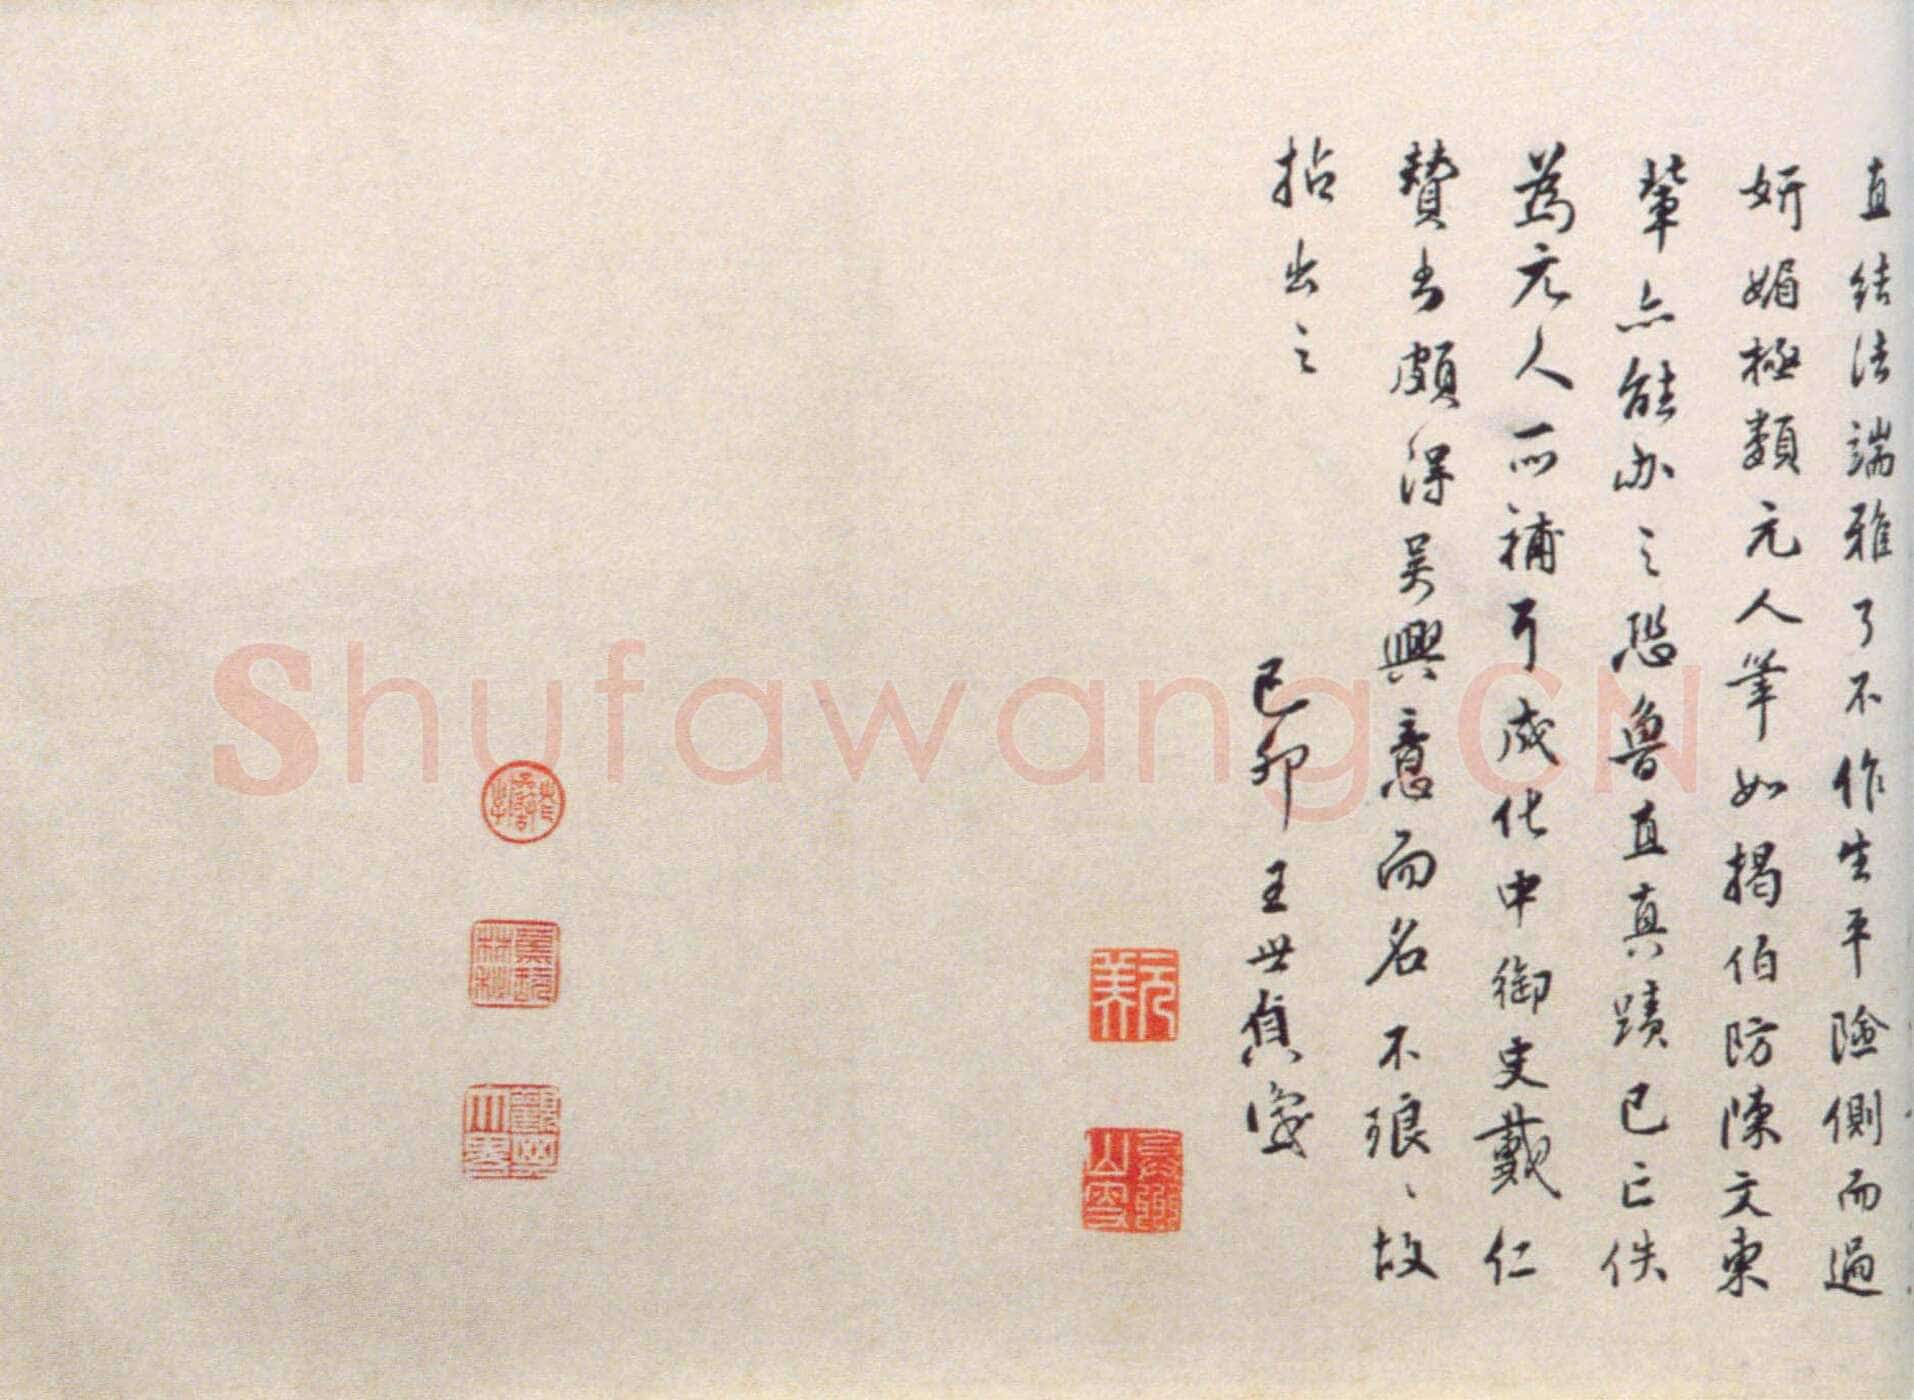 直結法端雅了不作生平險側而過
妍媚極類元人筆如揭伯防陳文東
輩亦能办之恐魯直真蹟已亡佚
為元人所補耳成化中御史戴仁
贊書頗得吳興意而名不琅、故
拈出之
己卯王世貞識
元美
Shufawang.CN